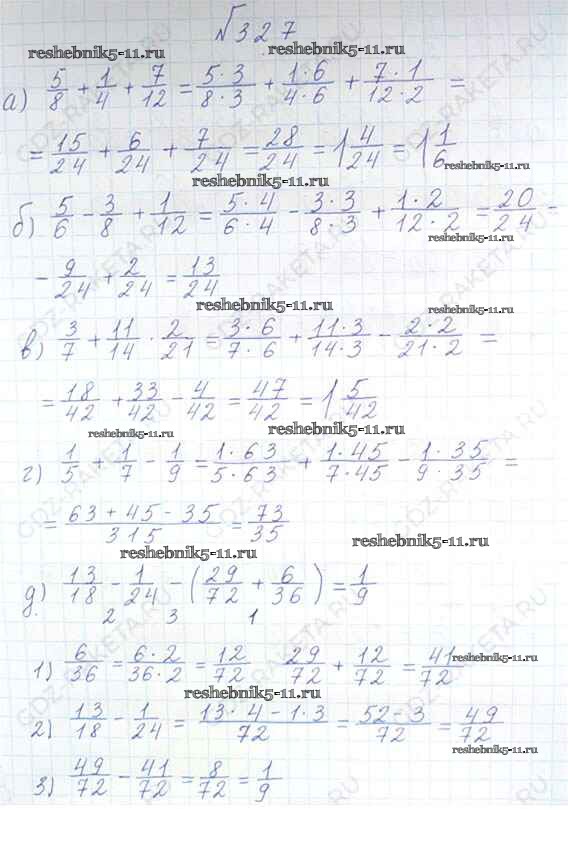 №327
reshebnik5-11.ru
а) 5/8 + 1/4 + 7/12 = 5·3/8·3 + 1·6/4·6 + 7·1/12·2 =
= 15/24 + 6/24 + 7/24 = 28/24 = 1 4/24 = 1 1/6
reshebnik5-11.ru
reshebnik5-11.ru
б) 5/6 - 3/8 + 1/12 = 5·4/6·4 - 3·3/8·3 + 1·2/12·2 = 20/24 -
reshebnik5-11.ru
- 9/24 + 2/24 = 13/24
reshebnik5-11.ru
reshebnik5-11.ru
в) 3/7 + 11/14 · 2/21 = 3·6/7·6 + 11·3/14·3 - 2·2/21·2 =
= 18/42 + 33/42 - 4/42 = 47/42 = 1 5/42
reshebnik5-11.ru
reshebnik5-11.ru
г) 1/5 + 1/7 - 1/9 = 1·63/5·63 + 1·45/7·45 - 1·35/9·35 =
= 63+45-35/315 = 73/35
reshebnik5-11.ru
reshebnik5-11.ru
д) 13/18 - 1/24 - (29/72 + 6/36) = 1/9
2 3 1
1) 6/36 = 6·2/36·2 = 12/72 29/72 + 12/72 = 41/72
reshebnik5-11.ru
reshebnik5-11.ru
2) 13/18 - 1/24 = 13·4-1·3/72 = 52-3/72 = 49/72
reshebnik5-11.ru
3) 49/72 - 41/72 = 8/72 = 1/9
GDZ-RAKETA.RU